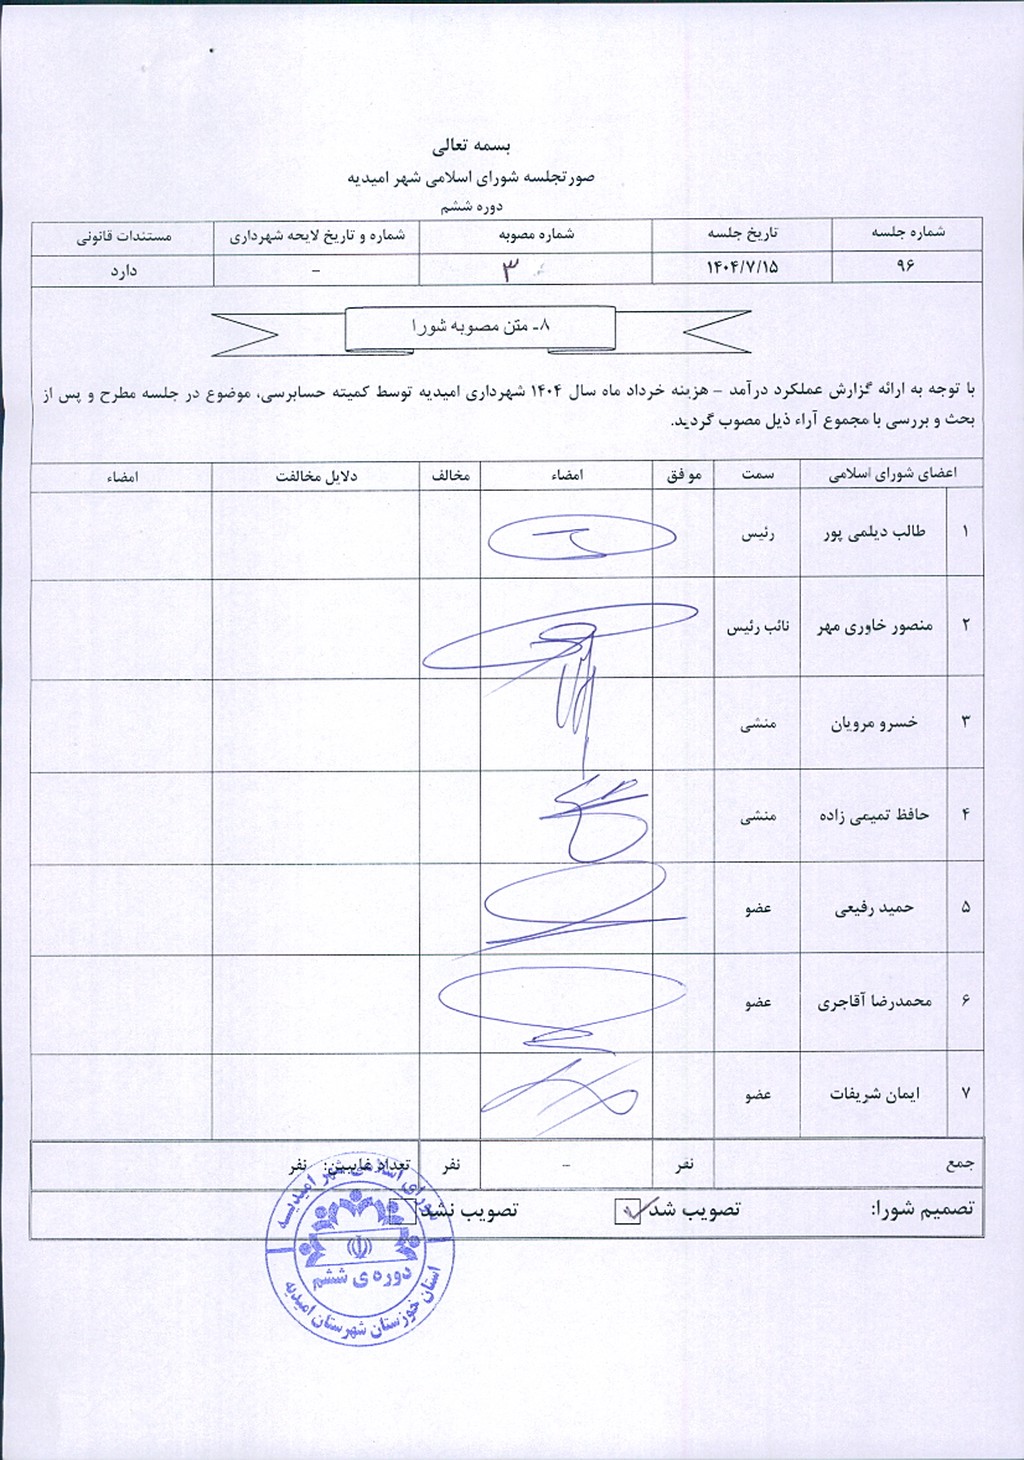 بسمه تعالی
صورتجلسه شورای اسلامی شهر امیدیه
دوره ششم
شماره جلسه تاریخ جلسه شماره مصوبه شماره و تاریخ لایحه شهرداری مستندات قانونی
۹۶ ۱۴۰۴/۷/۱۵ ۳ - دارد
۸- متن مصوبه شورا
با توجه به ارائه گزارش عملکرد درآمد – هزینه خرداد ماه سال ۱۴۰۴ شهرداری امیدیه توسط کمیته حسابرسی، موضوع در جلسه مطرح و پس از
بحث و بررسی با مجموع آراء ذیل مصوب گردید.
اعضای شورای اسلامی سمت موفق امضاء مخالف دلایل مخالفت امضاء
۱ طالب دیلمی پور رئیس
۲ منصور خاوری مهر نائب رئیس
۳ خسرو مرویان منشی
۴ حافظ تمیمی زاده منشی
۵ حمید رفیعی عضو
۶ محمدرضا آقاجری عضو
۷ ایمان شریفات عضو
جمع نفر - نفر تعداد غایبین: نفر
تصمیم شورا: تصویب شد تصویب نشد
شورای اسلامی شهر امیدیه
دوره ی ششم
استان خوزستان شهرستان امیدیه